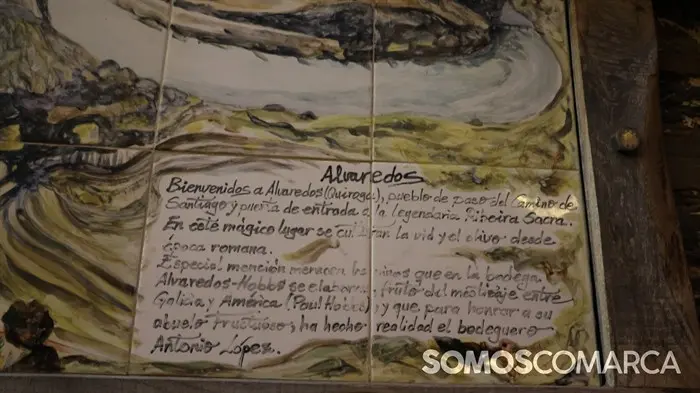 Alvaredos
Bienvenidos a Alvaredos (Quiroga), pueblo de paso del Camino de
Santiago y puerta de entrada a la legendaria Ribeira Sacra.
En este mágico lugar se cultivan la vid y el olivo desde
época romana.
Especial mención merecen los vinos que en la bodega
Alvaredos-Hobbs se elaboran, fruto del mestizaje entre
Galicia y América (Paul Hobbs), y que para honrar a su
abuelo Fructuoso, ha hecho realidad el bodeguero
Antonio López.
SOMOSCOMARCA